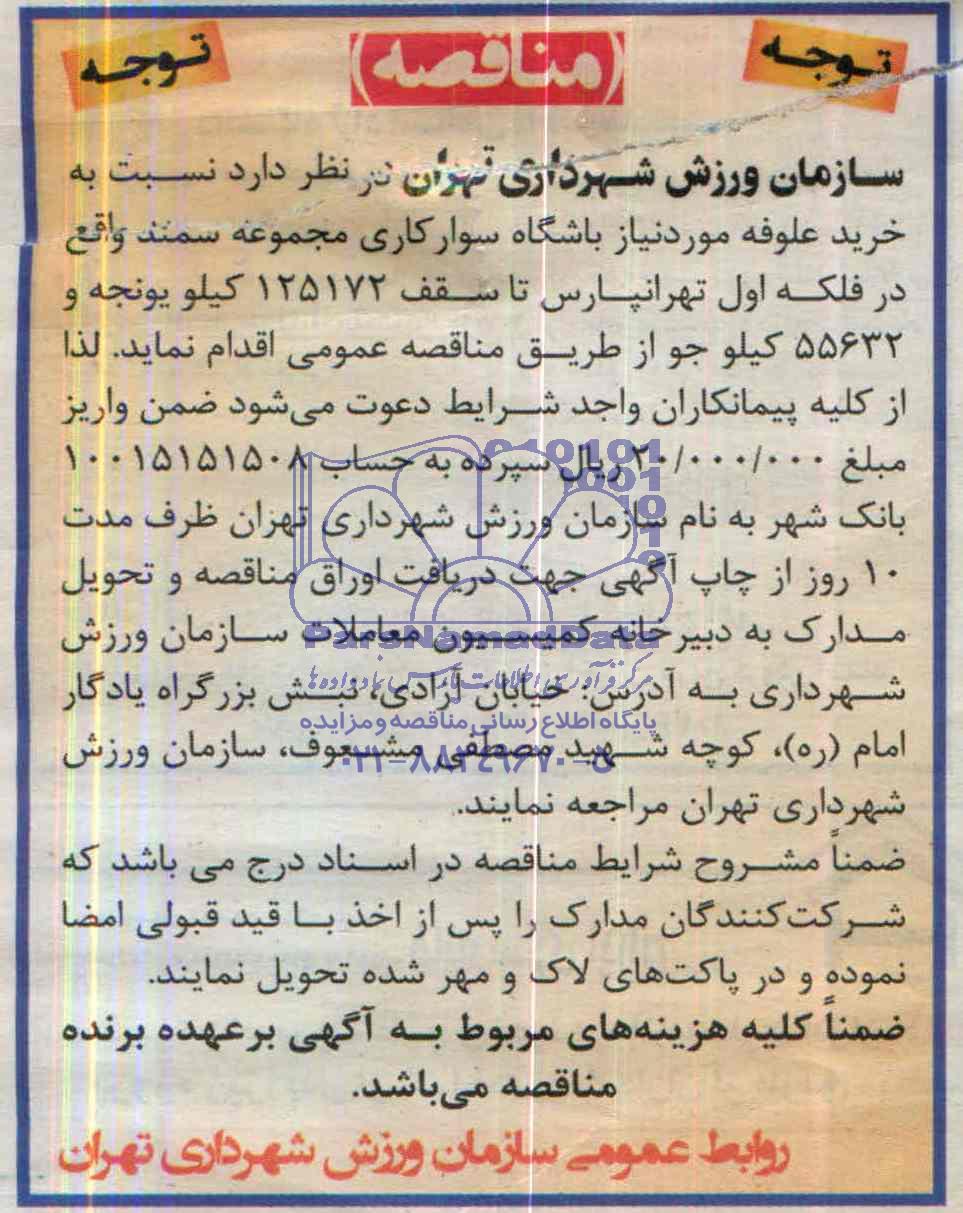 توجه
(مناقصه)
توجه
سازمان ورزش شهرداری تهران در نظر دارد نسبت به
خرید علوفه موردنیاز باشگاه سوارکاری مجموعه سمند واقع
در فلکه اول تهرانپارس تا سقف ۱۲۵۱۷۲ کیلو یونجه و
۵۵۶۳۲ کیلو جو از طریق مناقصه عمومی اقدام نماید. لذا
از کلیه پیمانکاران واجد شرایط دعوت می‌شود ضمن واریز
مبلغ ۲۰/۰۰۰/۰۰۰ ریال سپرده به حساب ۱۰۰۱۵۱۵۱۵۰۸
بانک شهر به نام سازمان ورزش شهرداری تهران ظرف مدت
۱۰ روز از چاپ آگهی جهت دریافت اوراق مناقصه و تحویل
مدارک به دبیرخانه کمیسیون معاملات سازمان ورزش
شهرداری به آدرس: خیابان آزادی، نبش بزرگراه یادگار
امام (ره)، کوچه شهید مصطفی مشعوف، سازمان ورزش
شهرداری تهران مراجعه نمایند.
ضمناً مشروح شرایط مناقصه در اسناد درج می باشد که
شرکت‌کنندگان مدارک را پس از اخذ با قید قبولی امضا
نموده و در پاکت‌های لاک و مهر شده تحویل نمایند.
ضمناً کلیه هزینه‌های مربوط به آگهی برعهده برنده
مناقصه می‌باشد.
روابط عمومی سازمان ورزش شهرداری تهران
ParsNamadData
مرکز فرآوری اطلاعات پارس نماد داده‌ها
پایگاه اطلاع رسانی مناقصه و مزایده
۰۲۱-۸۸۳۴۹۶۷۰-۵